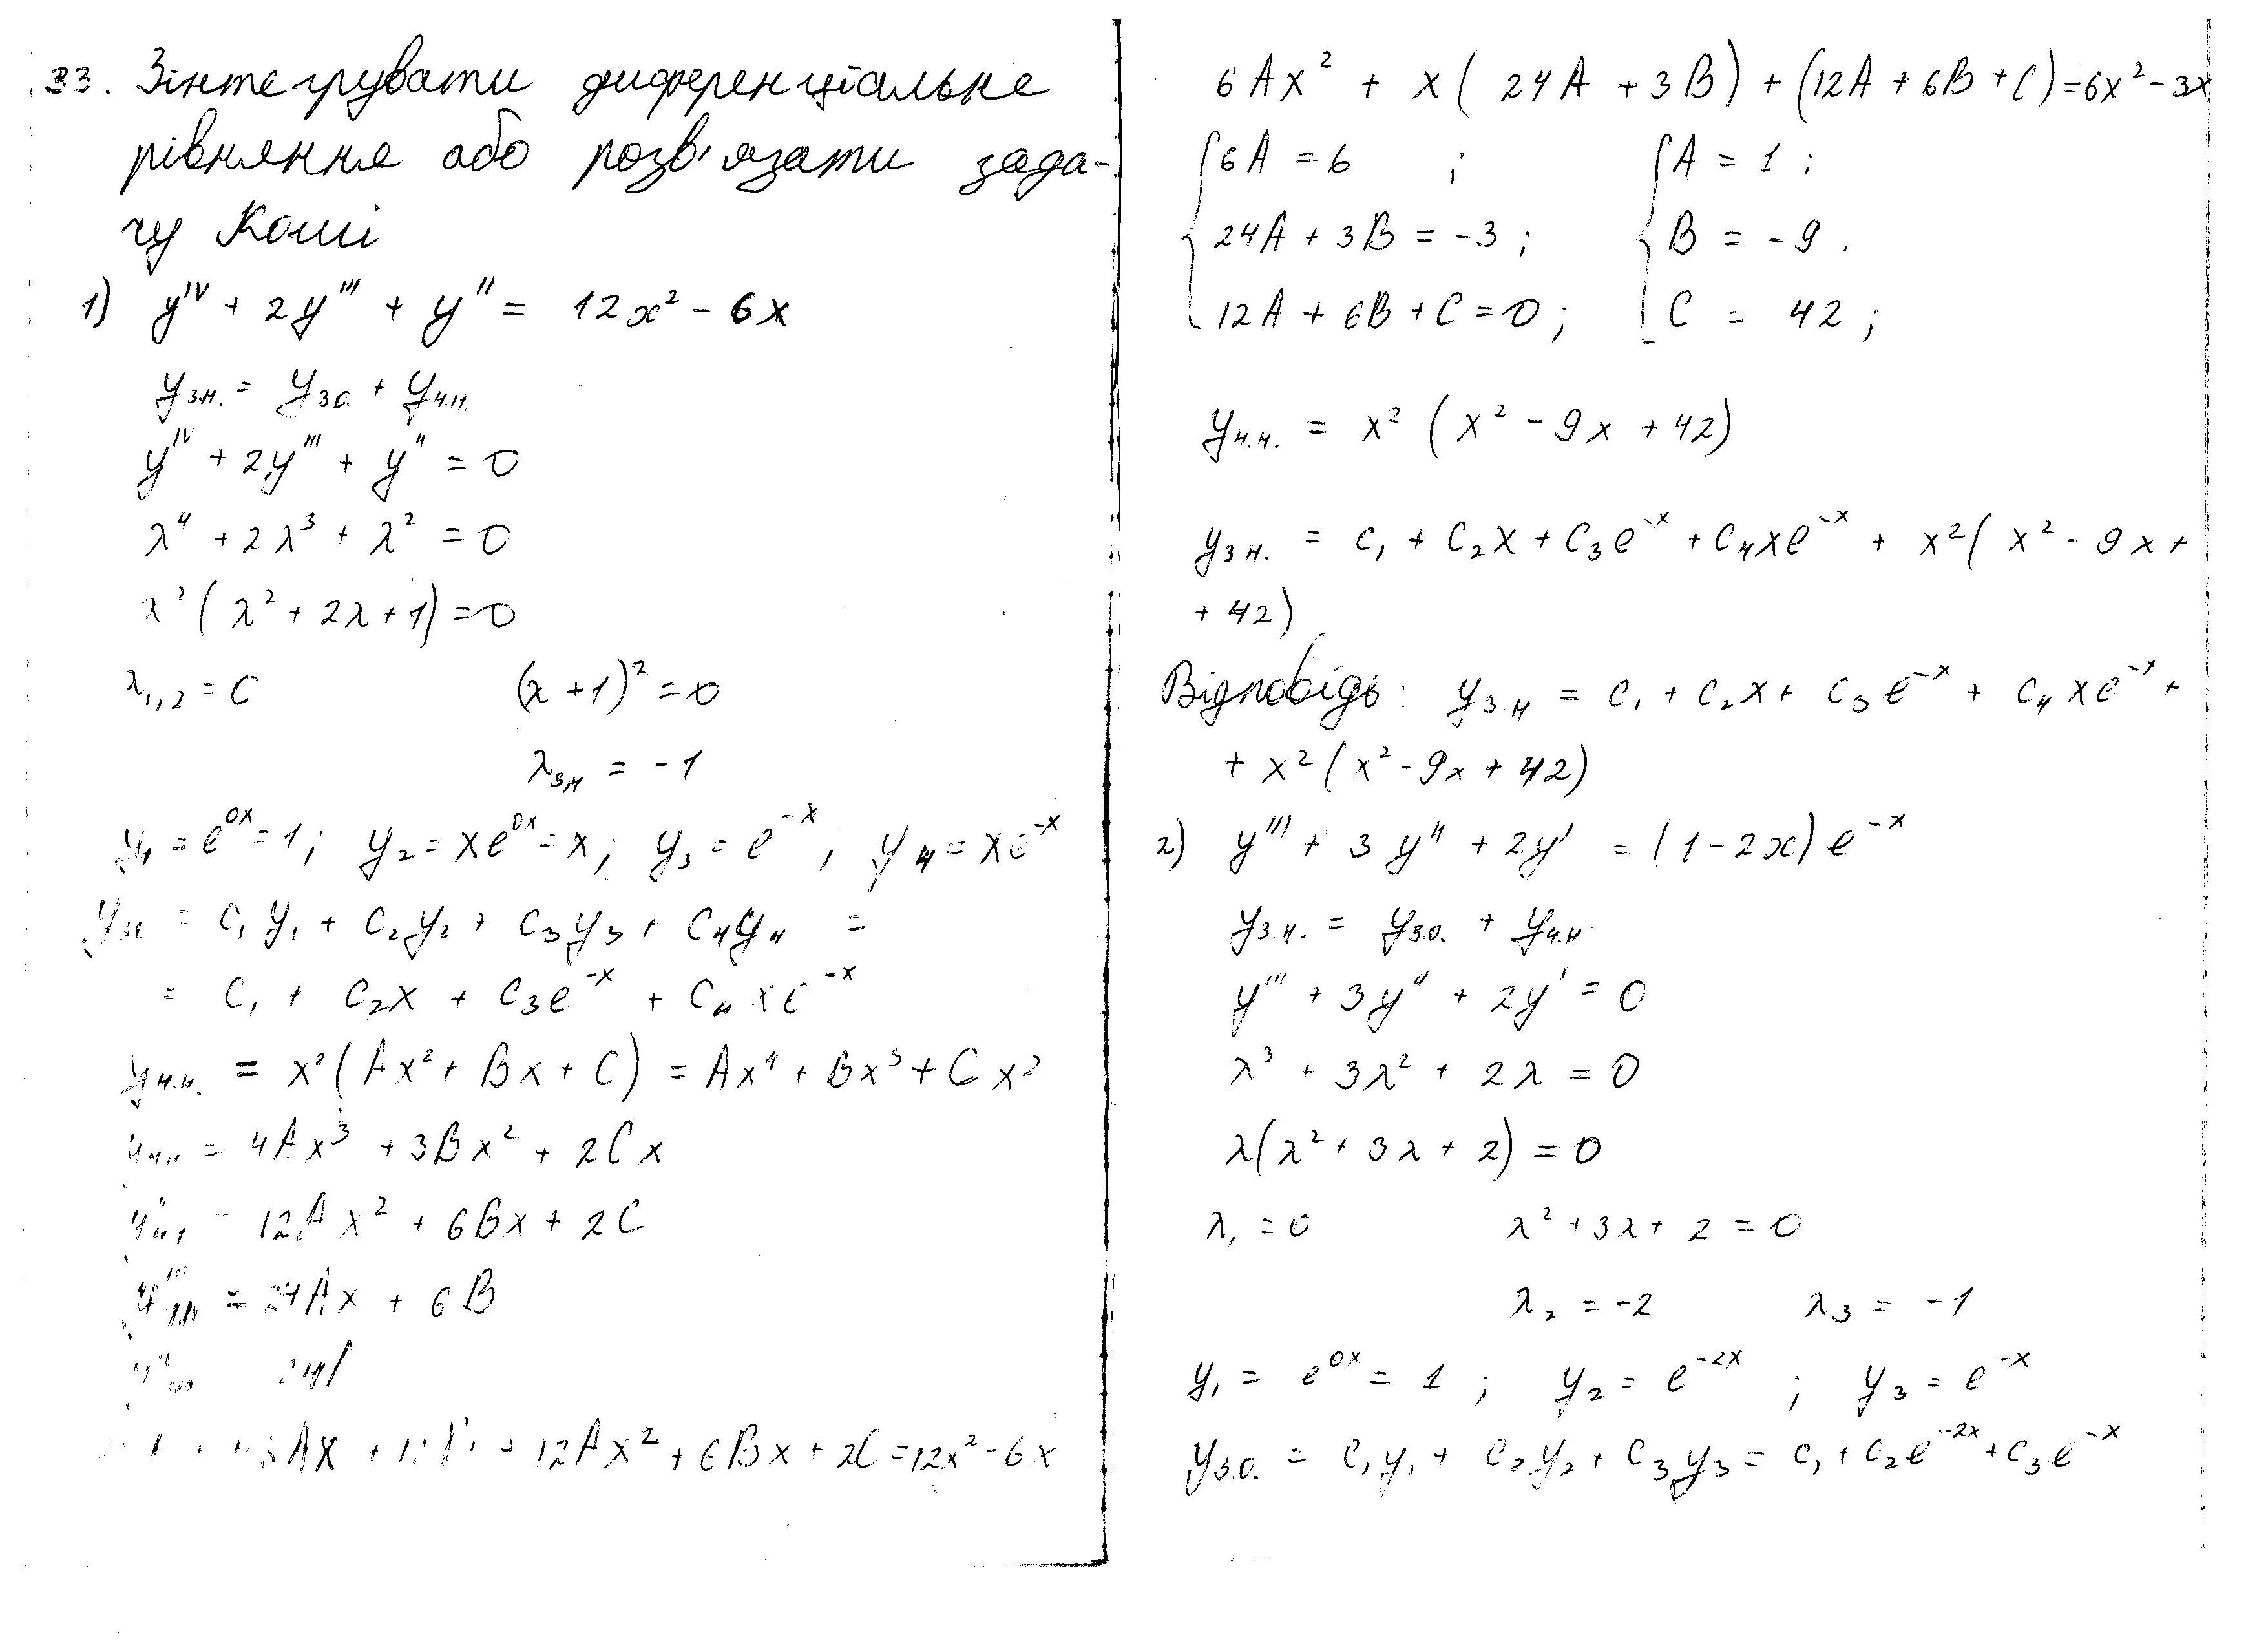 33. Зінтегрувати диференціальне
рівняння або розв'язати зада-
чу Коші
1) y^IV + 2y''' + y'' = 12x² - 6x
y з.н. = y з.о. + y ч.н.
y^IV + 2y''' + y'' = 0
λ⁴ + 2λ³ + λ² = 0
λ²(λ² + 2λ + 1) = 0
λ₁,₂ = 0 (λ + 1)² = 0
λ₃,₄ = -1
y₁ = e^0x = 1; y₂ = xe^0x = x; y₃ = e^-x; y₄ = xe^-x
y з.о. = C₁y₁ + C₂y₂ + C₃y₃ + C₄y₄ =
= C₁ + C₂x + C₃e^-x + C₄xe^-x
y ч.н. = x²(Ax² + Bx + C) = Ax⁴ + Bx³ + Cx²
y ч.н. = 4Ax³ + 3Bx² + 2Cx
y'' ч.н. = 12Ax² + 6Bx + 2C
y''' ч.н. = 24Ax + 6B
Ax + 12Ax² + 6Bx + 2C = 12x² - 6x
6Ax² + x(24A + 3B) + (12A + 6B + C) = 6x² - 3x
{ 6A = 6 ; { A = 1 ;
24A + 3B = -3 ; B = -9 .
12A + 6B + C = 0 ; C = 42 ;
y ч.н. = x² (x² - 9x + 42)
y з.н. = C₁ + C₂x + C₃e^-x + C₄xe^-x + x²(x² - 9x +
+ 42)
Відповідь: y з.н = C₁ + C₂x + C₃e^-x + C₄xe^-x +
+ x²(x² - 9x + 42)
2) y''' + 3y'' + 2y' = (1 - 2x)e^-x
y з.н. = y з.о. + y ч.н
y''' + 3y'' + 2y' = 0
λ³ + 3λ² + 2λ = 0
λ(λ² + 3λ + 2) = 0
λ₁ = 0 λ² + 3λ + 2 = 0
λ₂ = -2 λ₃ = -1
y₁ = e^0x = 1 ; y₂ = e^-2x ; y₃ = e^-x
y з.о. = C₁y₁ + C₂y₂ + C₃y₃ = C₁ + C₂e^-2x + C₃e^-x